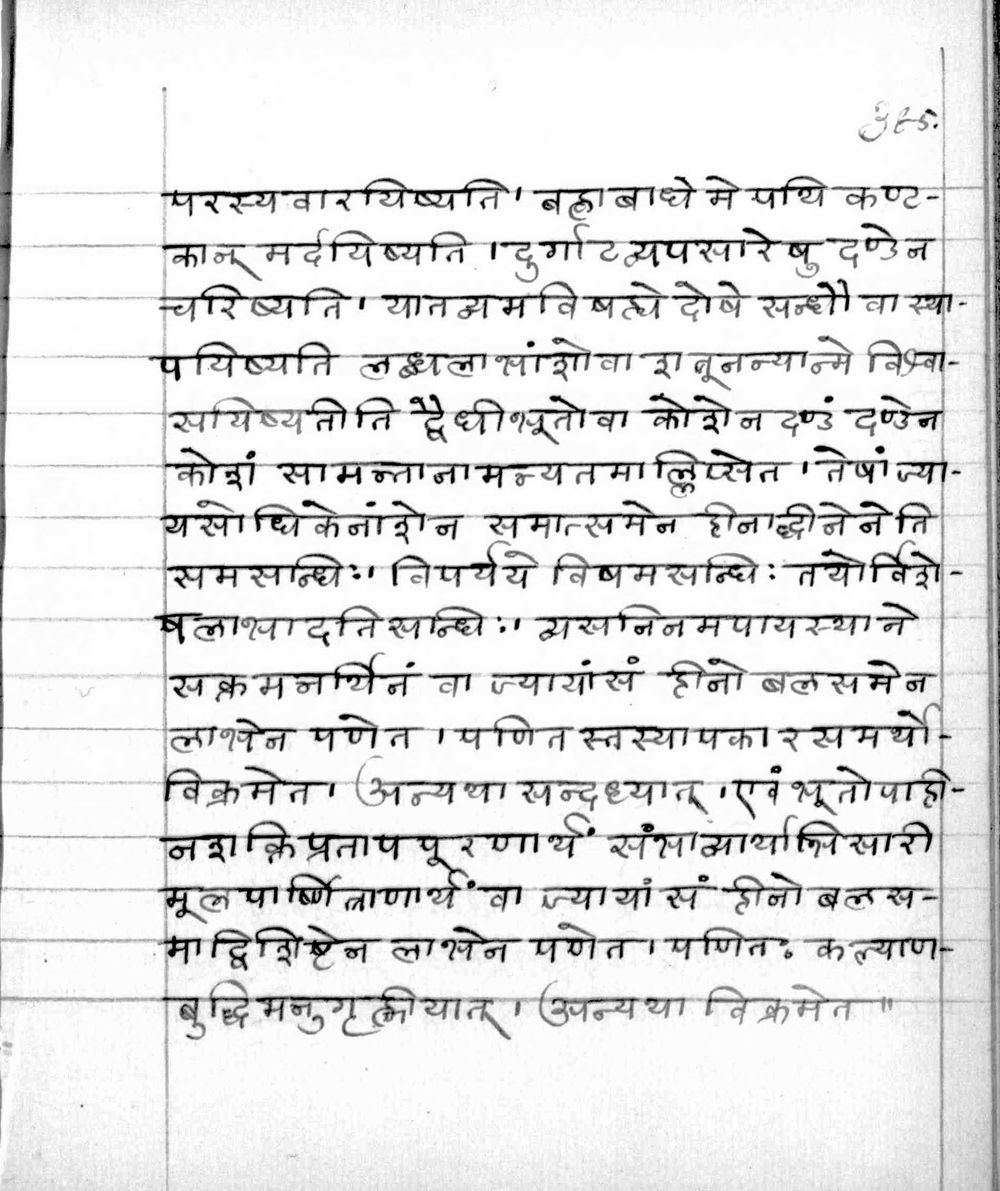 385.
परस्यवारयिष्यति। बह्वाबाधे मे पथि कण्ट-
कान् मर्दयिष्यति। दुर्गाटव्यपसारेषु दण्डेन
चरिष्यति। यातव्यमविषह्ये दोषे सन्धौ वा स्था-
पयिष्यति लब्धलाभांशोवा शत्रूनन्यान्मे विश्वा-
सयिष्यतीति द्वैधीभूतोवा कोशेन दण्डं दण्डेन
कोशं सामन्तानामन्यतमाल्लिप्सेत। तेषां ज्या-
यसोधिकेनांशेन समात्समेन हीनाद्धीनेनेति
समसन्धिः। विपर्यये विषमसन्धिः तयोर्विशे-
षलाभादतिसन्धिः। व्यसनिनमपायस्थाने
सक्तमनर्थिनं वा ज्यायांसं हीनो बलसमेन
लाभेन पणेत। पणितस्तस्यापकारसमर्थो
विक्रमेत। अन्यथा सन्दध्यात्। एवंभूतोपाही-
नशक्तिप्रतापपूरणार्थं संभाव्यार्थाभिसारी
मूलपार्ष्णित्राणार्थं वा ज्यायांसं हीनो बलस-
माद्विशिष्टेन लाभेन पणेत। पणितः कल्याण-
बुद्धिमनुगृह्णीयात्। अन्यथा विक्रमेत॥